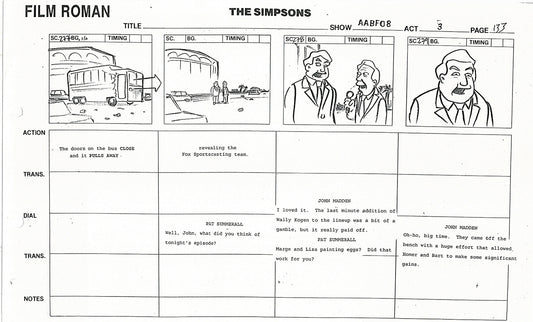 FILM ROMAN
THE SIMPSONS
TITLE
SHOW AABF08 ACT 3 PAGE 133
SC. BG. TIMING
SC. BG. TIMING
SC. BG. TIMING
SC. BG. TIMING
ACTION
The doors on the bus CLOSE
and it PULLS AWAY.
revealing the
Fox Sportscasting team.
TRANS.
DIAL
PAT SUMMERALL
Well, John, what did you think of
tonight's episode?
JOHN MADDEN
I loved it. The last minute addition of
Wally Kogen to the lineup was a bit of a
gamble, but it really paid off.
PAT SUMMERALL
Marge and Lisa painting eggs? Did that
work for you?
JOHN MADDEN
Oh-ho, big time. They came off the
bench with a huge effort that allowed
Homer and Bart to make some significant
gains.
TRANS.
NOTES